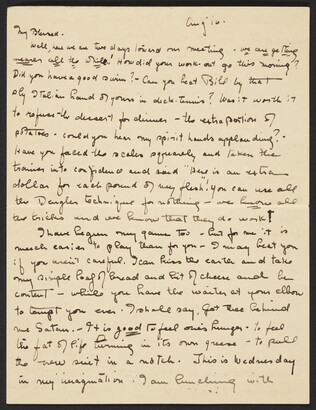 Aug 16.
My Blessed.
Well, here we are two days toward our meeting - we are getting
nearer all the time. How did your work-out go this morning?
Did you have a good swim? - Can you beat Bill by that
sly Italian hand of yours in deck-tennis? Was it worth it
to refuse the dessert for dinner - the extra portion of
potatoes - could you hear my spirit hands applauding? -
Have you faced the scales squarely and taken the
trainer into confidence and said "Here is an extra
dollar for each pound of my flesh". You can use all
the Dengler technique for nothing - we know all
the tricks and we know that they do work!
I have begun my game too - but for me it is
much easier to play than for you - I may beat you
if you aren't careful. I can kiss the earth and take
my simple loaf of bread and bit of cheese and be
content - while you have the waiter at your elbow
to tempt you ever. I shall say, Get thee behind
me Satan. - It is good to feel one's hunger. To feel
the fat of life burning in its own grease - to pull
the belt in a notch. This is Wednesday
in my imagination. I am lunching with